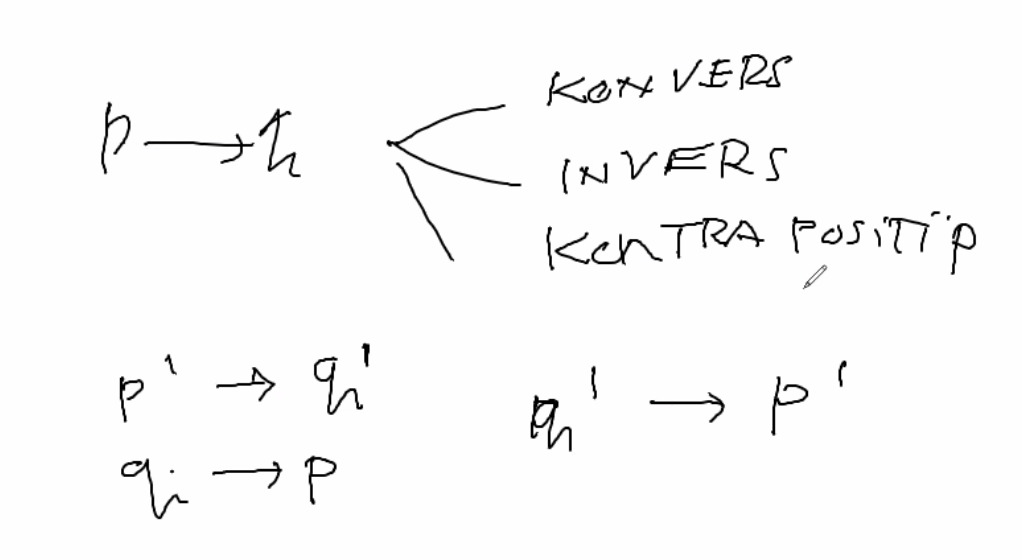 p → q
KONVERS
INVERS
KONTRA POSITIP
p' → q'
q → p
q' → p'